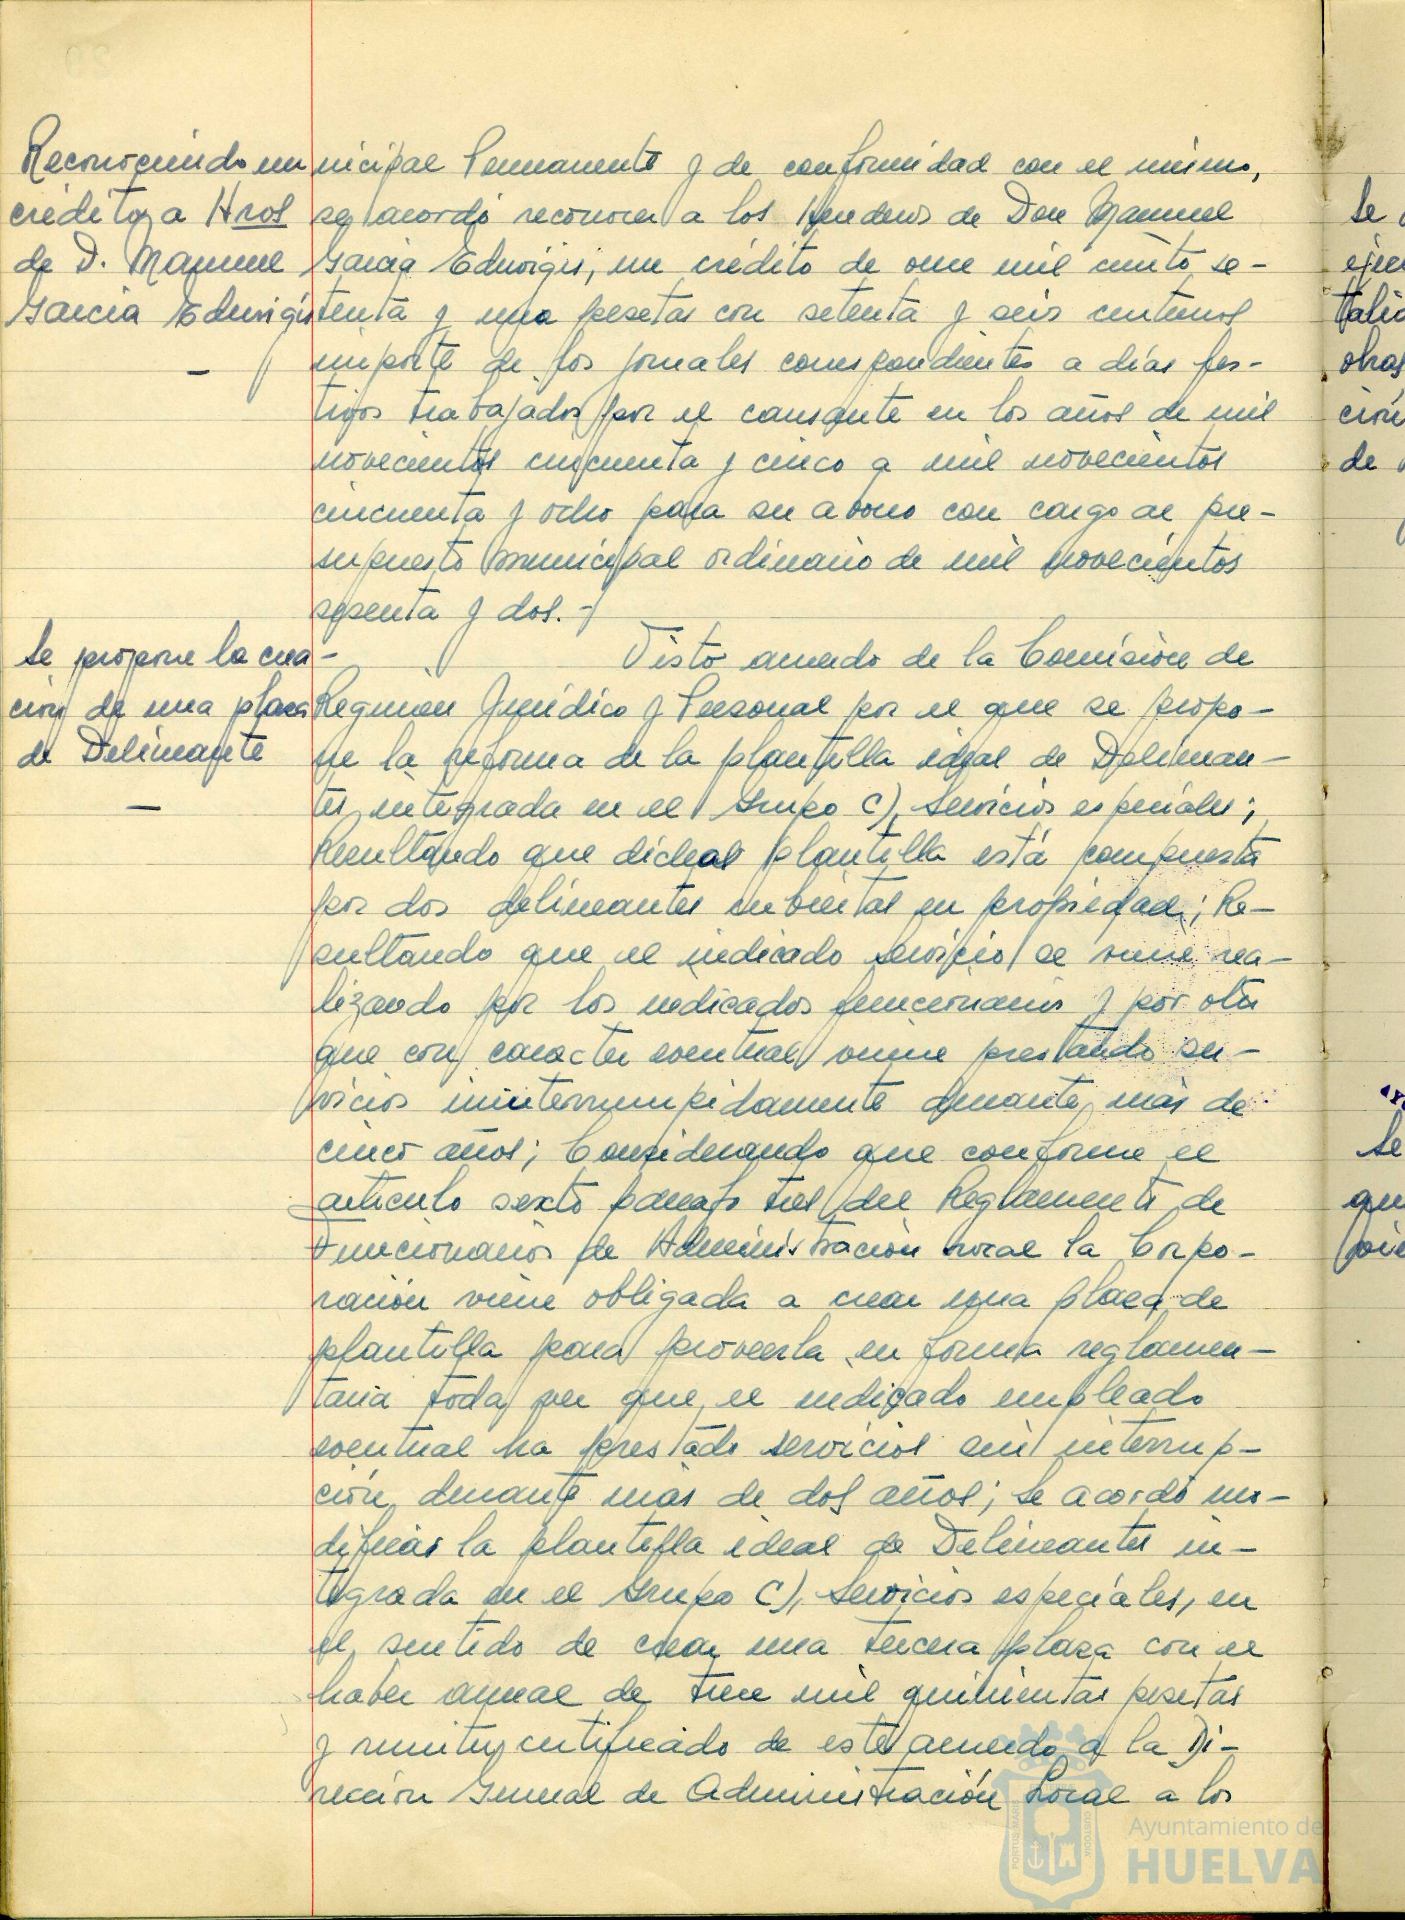 Reconociendo un
crédito a Hros
de D. Manuel
Garcia Eduvigis
nicipal Permanente y de conformidad con el mismo,
se acordó reconocer a los Herederos de Don Manuel
Garcia Eduvigis, un crédito de once mil ciento se-
tenta y una pesetas con setenta y seis centimos
importe de los jornales correspondientes a días fes-
tivos trabajados por el causante en los años de mil
novecientos cincuenta y cinco a mil novecientos
cincuenta y ocho para su abono con cargo al pre-
supuesto municipal ordinario de mil novecientos
sesenta y dos.-
Se propone la crea-
ción de una plaza
de Delineante
Visto acuerdo de la Comisión de
Regimen Jurídico y Personal por el que se propo-
ne la reforma de la plantilla ideal de Delinean-
tes integrada en el Grupo C), Servicios especiales;
Resultando que dicha plantilla está compuesta
por dos delineantes cubiertas en propiedad; Re-
sultando que el indicado servicio se viene rea-
lizando por los indicados funcionarios y por otro
que con caracter eventual viene prestando ser-
vicios ininterrumpidamente durante más de
cinco años; Considerando que conforme el
artículo sexto parrafo tres del Reglamento de
Funcionarios de Administración Local la Corpo-
ración viene obligada a crear una plaza de
plantilla para proveerla en forma reglamen-
taria toda vez que el indicado empleado
eventual ha prestado servicios sin interrup-
ción durante más de dos años; Se acordó mo-
dificar la plantilla ideal de Delineantes in-
tegrada en el Grupo C), Servicios especiales, en
el sentido de crear una tercera plaza con el
haber anual de trece mil quinientas pesetas
y remitir certificado de este acuerdo a la Di-
rección General de Administración Local a los
Ayuntamiento de
HUELVA
PORTUS MARIS
CUSTODIA
Se
ejec
talic
obras
ción
de
Se
que